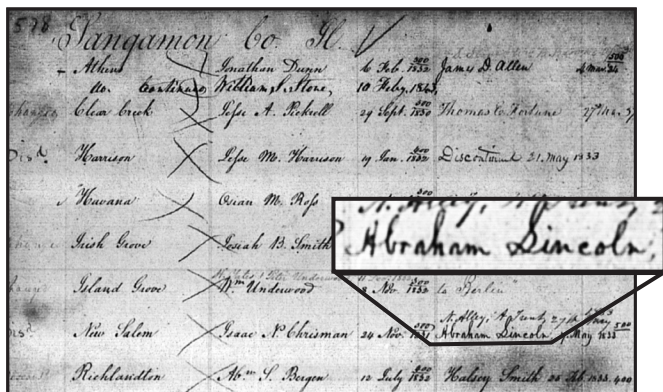 578
Sangamon Co Il.
Athens Jonathan Dunn 6 Feb. 1832 James D. Allen
do. Continued William S. Stone, 10 Feby, 1843
Clear Creek Jesse A. Pickrell 29 Sept. 1830 Thomas C. Fortune
Dis. Harrison Jesse M. Harrison 19 Jan. 1832 Discontinued 21. May 1833
Havana Osian M. Ross
N. Alley, A Trent,
Abraham Lincoln,
Irish Grove Josiah B. Smith
Island Grove Wm Underwood 2 Nov. 1832 to Berlin
N. Alley, A Trent, 27th May 3
Dis. New Salem Isaac P. Chrisman 24 Nov. 1831 Abraham Lincoln 7. May 1833 500
Richlandton Wm S. Bergen 12 July 1832 Halsey Smith 25 Feb. 1833. 400